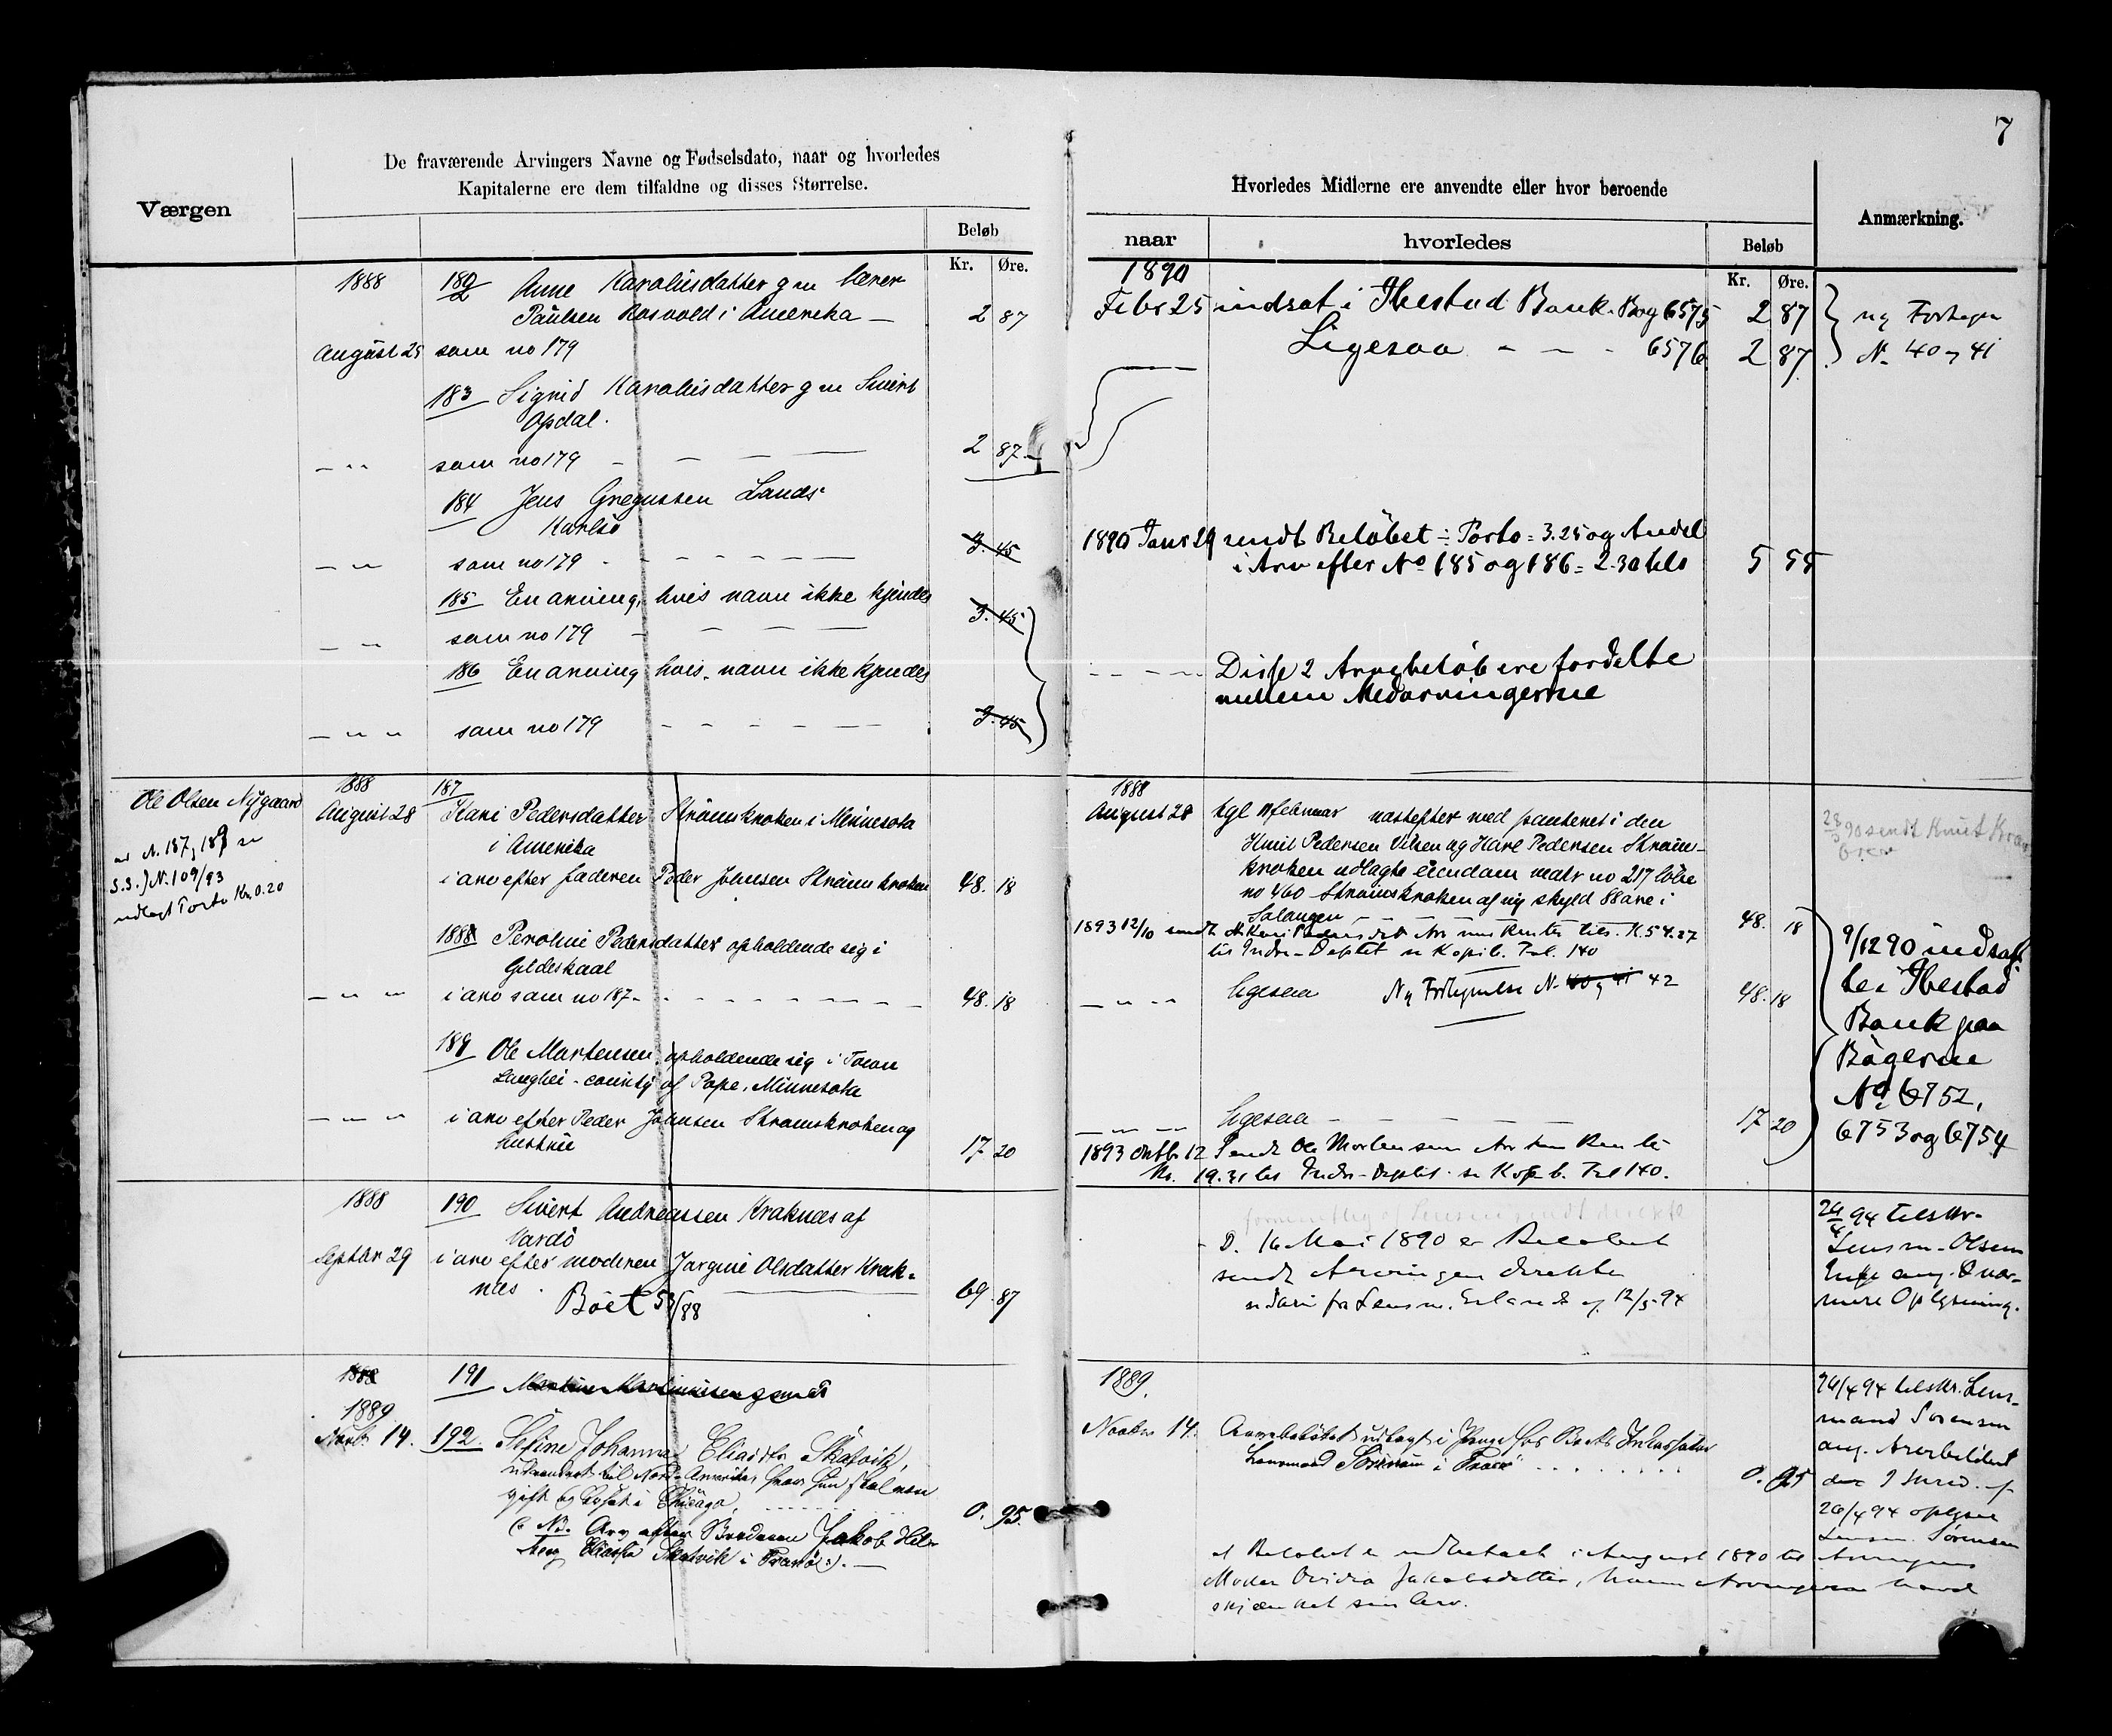 7
Værgen
De fraværende Arvingers Navne og Fødselsdato, naar og hvorledes
Kapitalerne ere dem tilfaldne og disses Størrelse.
Beløb
Kr. Øre.
1888 182 Anne Karoliusdatter g m lærer
Paulsen Rosvold i Amerika — 2 87
August 25 som no 179
183 Sigrid Karoliusdatter g m Sivert
Opdal.
2 87
— " som no 179 — — — —
184 Jens Gregussen Lands-
Karlsö
3.45
— " — som no 179 - - - - -
185 En arving, hvis navn ikke kjendes
3.45
— " — som no 179 — — — —
186 En arving hvis navn ikke kjendes
3.45
— " — " som no 179 - - - - -
Ole Olsen Nygaard
N. 187, 189 se
S.S. J N. 109/93
udlagt Porto Kr. 0.20
1888 187
August 28 Kari Pedersdatter Strömskroken i Minnesota
i Amerika
i arv efter faderen Peder Johnsen Strömskroken 48. 18
188 Peroline Pedersdatter opholdende sig i
Gildeskaal
— " — " i arv som no 187 - - - - - 48. 18
189 Ole Martensen opholdende sig i Town
Langhei - county of Pope, Minnesota
— " — " i arv efter Peder Johnsen Strömskroken og
hustru 17 20
1888 190 Sivert Andreassen Kraknæs af
Vardö
Septbr 29 i arv efter moderen Jørgine Olsdatter Krak-
næs. 69. 87
Boet 53/88
1888 191 Martinussen
1889
Novbr 14. 192. Sefine Johanna Eliasdtr Skatvik,
udvandret til Nord-Amerika, hvor hun skal være
gift og bosat i Chicago, 0. 95.
(: NB. Arv efter Broderen Jakob Hel-
Eliassen Skatvik i Tranö :). —
Hvorledes Midlerne ere anvendte eller hvor beroende
Anmærkning.
naar hvorledes Beløb
Kr. Øre.
1890
Febr 25 indsat i Ibestad Bank. Bog 6575 2 87 ny Fortegn
Ligesaa - - - 6576 2 87 N. 40 og 41
1890 Janr 29 sendt Beløbet ÷ Porto = 3.25 og Andel
i Arv efter No 185 og 186 = 2.30 tils 5 55
- - - - Disse 2 Arvebeløb ere fordelte
mellem Medarvingerne
1888
August 28 tgl februar næstefter med panteret i den
Knut Pedersen Vilsen og Karl Pedersen Ström-
kroken udlagte eiendom matr no 217 löbe
no 460 Strömskroken af ny skyld 88 øre i
Salangen 48. 18
1893 12/10 sendt Kari Peders dtr Arv med Renter tils. K. 54.27
til Indre-Deptet se Kopib. Fol. 140
— " — " ligesaa Ny Fortegnelse N. 40 og 41 42 48. 18
— " — " ligesaa - - - - - 17 20
1893 Oktbr 12 Sendt Ole Mortensen Arv Rente
Kr. 19.31 til Indre-Deptet. se Kopib. Fol 140.
sendt Knut
9/12 90 indsat
tes i Ibestad
Bank paa
Bögerne
No 6752,
6753 og 6754
sendt direkte
D. 16 Mai 1890 er Beløbet
sendt Arvingen direkte
fra Lensm. af 12/5-94
24/4 94 tilskr-
Lensm. Olsen
ang. nær-
mere Oplysning.
1889.
Novbr 14. Arvebeløbet udlagt i Penge hos Boets Inkassator
Lensmand Sörensen i Tranö . . . . . 0. 95
26/4 94 tilskr. Lens-
mand Sørensen
ang. Arvebeløbet
26/4 94 oplyser
Lensm. Sørensen
at Beløbet er udbetalt i August 1890 til Arvingens
Moder Jakobsdatter, hvem Arvingerne havde
skjænket sin Arv.